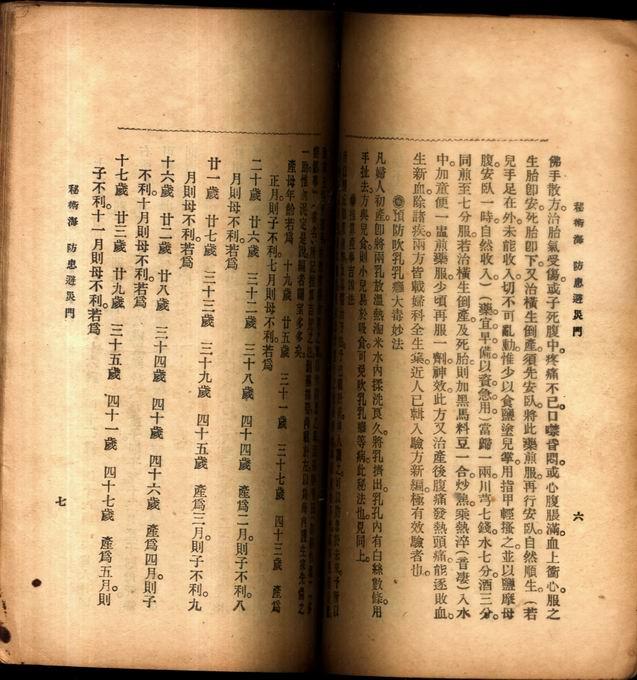 秘術海 防患避災門
六
佛手散方。治胎氣受傷。或子死腹中。疼痛不已。口噤昏悶。或心腹脹滿。血上衝心。服之
生胎卽安。死胎卽下。又治橫生倒產。須先安臥。將此藥煎服。再行安臥。自然順生。(若
兒手足在外。未能收入。切不可亂動。惟少以食鹽塗兒掌。用指甲輕搔之。並以鹽摩母
腹安臥一時。自然收入。)(藥宜早備以資急用)當歸一兩川芎七錢。水七分酒三分。
同煎至七分服。若治橫生倒產及死胎。則加黑馬料豆一合。炒熟乘熱淬(音凄)入水
中。加童便一盅煎藥服。少頃再服一劑神效。此方又治產後腹痛發熱頭痛。能逐敗血
生新血。除諸疾。兩方皆載婦科全生集。近人已輯入驗方新編。極有效驗者也。
◎預防吹乳乳癰大毒妙法
凡婦人初產。卽將兩乳放溫熱淘米水內。揉洗良久。將乳擠出。乳孔內有白絲數條。用
手扯去。方與兒食。則小兒易於吸食。可免吹乳乳癰等病。此秘法也。見同上。
產母年齡若爲 十九歲 廿五歲 三十一歲 三十七歲 四十三歲 產爲
正月則子不利。七月則母不利。若爲
二十歲 廿六歲 三十二歲 三十八歲 四十四歲 產爲二月則子不利。八
月則母不利。若爲
廿一歲 廿七歲 三十三歲 三十九歲 四十五歲 產爲三月則子不利。九
月則母不利。若爲
十六歲 廿二歲 廿八歲 三十四歲 四十歲 四十六歲 產爲四月。則子
不利。十月則母不利。若爲
十七歲 廿三歲 廿九歲 三十五歲 四十一歲 四十七歲 產爲五月。則
子不利。十一月則母不利。若爲
秘術海 防患避災門
七